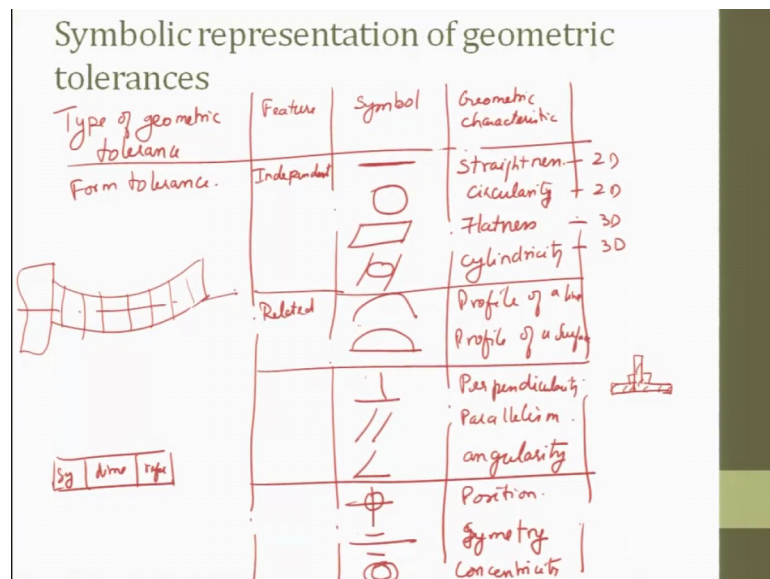 Symbolic representation of geometric
tolerances
Type of geometric tolerance Feature Symbol Geometric characteristic
Form tolerance. Independent Straightness 2D
Circularity 2D
Flatness 3D
Cylindricity 3D
Related Profile of a line
Profile of a surface
Perpendicularity
Parallelism
angularity
Sy dime
Position
Symetry
Concentricity